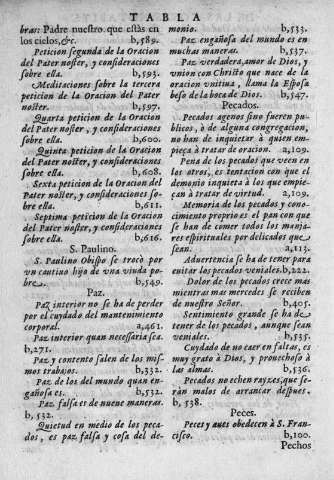 TABLA
bras: Padre nuestro que estàs en
los cielos, &c. b,589.
Peticion segunda de la Oracion
del Pater noster, y consideraciones
sobre ella. b,593.
Meditaciones sobre la tercera
peticion de la Oracion del Pater
noster. b,597.
Quarta peticion de la Oracion
del Pater noster, y consideraciones
sobre ella. b,600.
Quinta peticion de la Oracion
del Pater noster, y consideraciones
sobre ella. b,608.
Sexta peticion de la Oracion del
Pater noster, y consideraciones so-
bre ella. b,611.
Septima peticion de la Oracion
del Pater noster, y consideraciones
sobre ella. b,616.
S. Paulino.
S. Paulino Obispo se trocò por
un cautivo hijo de una viuda po-
bre. b,549.
Paz.
Paz interior no se ha de perder
por el cuydado del mantenimiento
corporal. a,461.
Paz interior quan necessaria sea.
b,271.
Paz y contento salen de los mis-
mos trabajos. b,332.
Paz de los del mundo quan en-
gañosa es. b,532.
Paz falsa es de nueve maneras.
b, 532.
Quietud en medio de los peca-
dos, es paz falsa y cosa del de-
monio. b,533.
Paz engañosa del mundo es en
muchas maneras. b,537.
Paz verdadera, amor de Dios, y
vnion con Christo que nace de la
oracion vnitiua, llama la Esposa
beso de la boca de Dios. b,547.
Pecados.
Pecados agenos sino fueren pu-
blicos, ò de alguna congregacion,
no han de inquietar à quien em-
pieça à tratar de oracion. a,109.
Pena de los pecados que veen en
los otros, es tentacion con que el
demonio inquieta à los que empie-
çan à tratar de virtud. a,109.
Memoria de los pecados y cono-
cimiento proprio es el pan con que
se han de comer todos los manja-
res espirituales por delicados que
sean. a,113.
Aduertencia se ha de tener para
euitar los pecados veniales. b,222.
Dolor de los pecados crece mas
mientras mas mercedes se reciben
de nuestro Señor. b,405.
Sentimiento grande se ha de
tener de los pecados, aunque sean
veniales. b,535.
Cuydado de no caer en faltas, es
muy grato à Dios, y prouechoso à
las almas. b,536.
Pecados no echen rayzes, que se-
ràn malos de arrancar despues.
b, 538.
Peces.
Peces y aues obedecen à S. Fran-
cisco. b,100.
Pechos